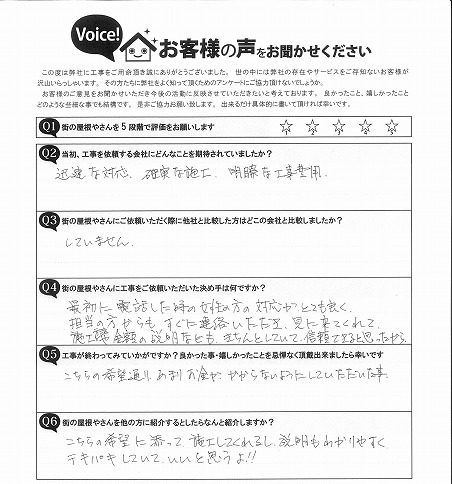 Voice!
お客様の声をお聞かせください
この度は弊社に工事をご用命頂き誠にありがとうございました。 世の中には弊社の存在やサービスをご存知ないお客様が
沢山いらっしゃいます。 その方たちに弊社をよく知って頂くためのアンケートにご協力頂けないでしょうか。
お客様のご意見をお聞かせいただき今後の活動に反映させていただきたいと考えております。 良かったこと、嬉しかったこと
どのような些細な事でも結構です。 是非ご協力お願い致します。 出来るだけ具体的に書いて頂ければ幸いです。
Q1 街の屋根やさんを5段階で評価をお願いします ☆1 ☆2 ☆3 ☆4 ☆5
Q2 当初、工事を依頼する会社にどんなことを期待されていましたか?
迅速な対応、確実な施工、明瞭な工事費用。
Q3 街の屋根やさんにご依頼いただく際に他社と比較した方はどこの会社と比較しましたか?
していません。
Q4 街の屋根やさんに工事をご依頼いただいた決め手は何ですか?
最初に電話した時の女性の方の対応がとても良く、
担当の方からも、すぐに連絡いただき、見に来てくれて、
金額の説明なども、きちんとしていて、信頼できると思ったから。
Q5 工事が終わってみていかがですか? 良かった事・嬉しかったことを忌憚なく頂戴出来ましたら幸いです
こちらの希望通り、あまりお金がかからないようにしていただいた事。
Q6 街の屋根やさんを他の方に紹介するとしたらなんと紹介しますか?
こちらの希望に添って施工してくれるし、説明もわかりやすく、
テキパキしていて、いいと思うよ!!